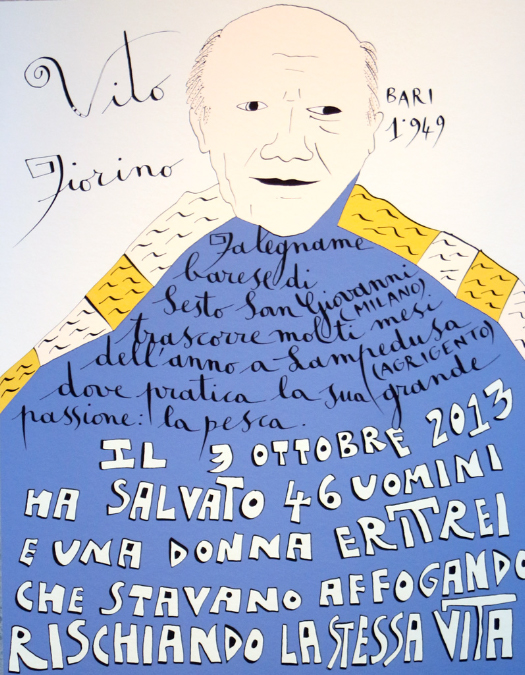 Vito
Fiorino
BARI
1.949
Falegname
barese di
Sesto San Giovanni
(MILANO)
trascorre molti mesi
dell'anno a Lampedusa
(AGRIGENTO)
dove pratica la sua grande
passione: la pesca.
IL 3 OTTOBRE 2013
HA SALVATO 46 UOMINI
E UNA DONNA ERITREI
CHE STAVANO AFFOGANDO
RISCHIANDO LA STESSA VITA